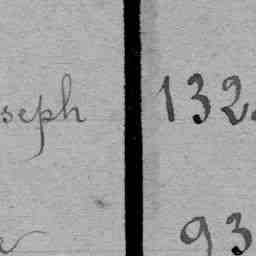 seph 132
93